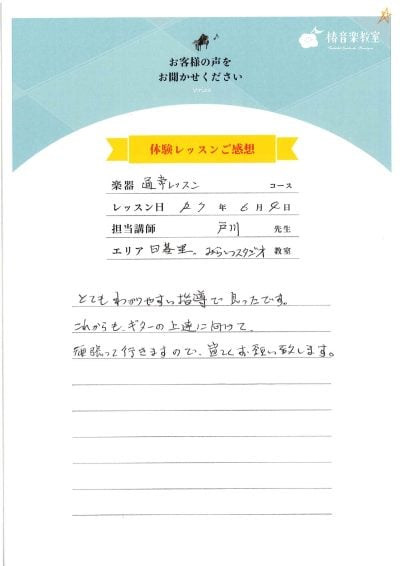 椿音楽教室
お客様の声を
お聞かせください
体験レッスンご感想
楽器 通常レッスン コース
レッスン日 R7 年 6 月 日
担当講師 戸川 先生
エリア 日暮里、みらいスタジオ 教室
とてもわかりやすい指導で良かったです。
これからも、ギターの上達に向けて、
頑張って行きますので、宜しくお願い致します。